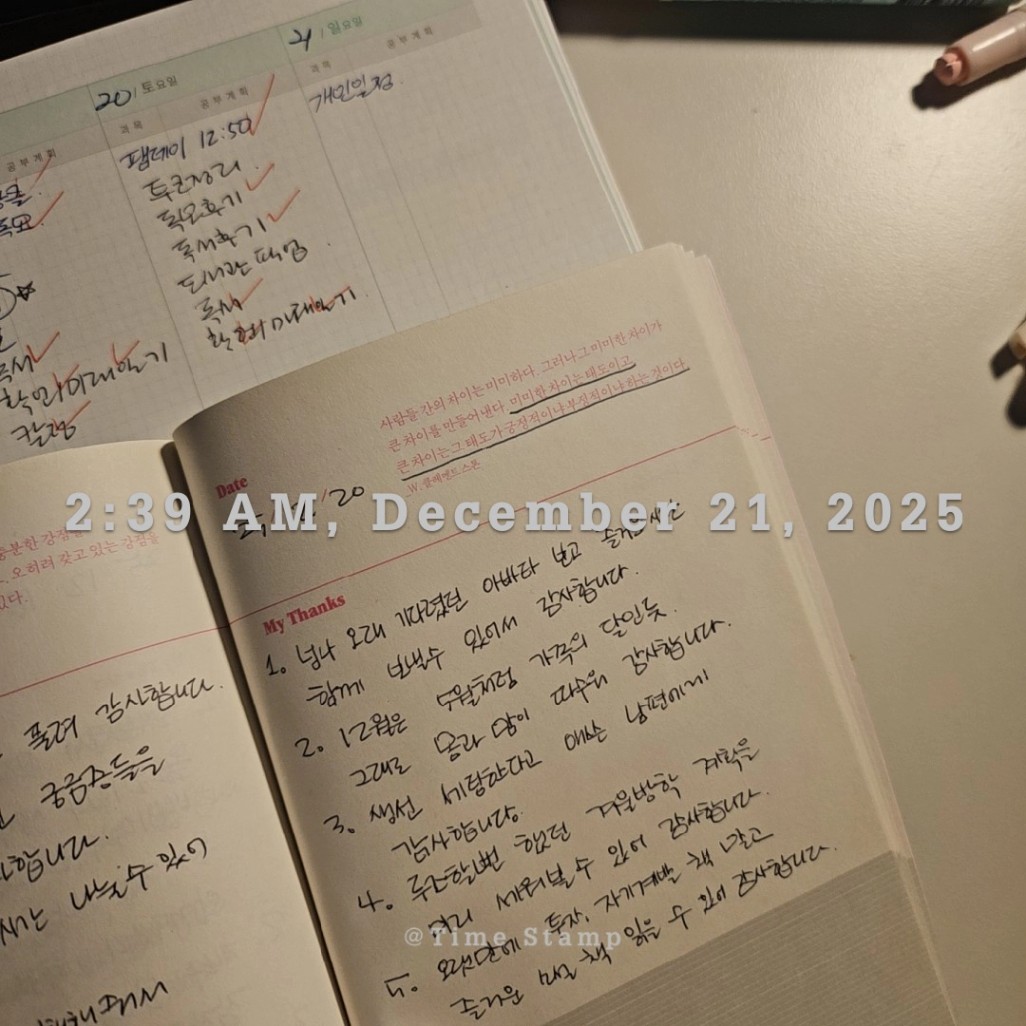 20/ 토요일
21/ 일요일
공부계획
과목
공부계획
과목
공부계획
팸데이 12:50
개인일정.
투콘정리.
독모후기
독서후기
도서관 픽업.
독서
확와미래일기
확와미래일기
칼럼
사람들 간의 차이는 미미하다. 그러나 그 미미한 차이가
큰 차이를 만들어 낸다. 미미한 차이는 태도이고
큰 차이는 그 태도가 긍정적이냐 부정적이냐 하는 것이다.
_W. 클레멘트 스톤
Date
/20
2:39 AM, December 21, 2025
My Thanks
1. 넘나 오래 기다렸던 아바타 보고 즐거운 시간
함께 보낼수 있어서 감사합니다.
2. 12월은 5월처럼 가족의 달인듯.
그대로 몸과 맘이 따수워 감사합니다.
3. 생선 세팅한다고 애쓴 남편에게
감사합니다.
4. 루즈할뻔 했던 겨울방학 계획을
미리 세워볼 수 있어 감사합니다.
5. 오랜만에 투자, 자기계발 책 말고
즐거운 소설 책 읽을 수 있어 감사합니다.
충분한 강점을
오히려 갖고 있는 강점을
있다.
풀려 감사합니다.
궁금증들을
감사합니다.
시간 나눌수 있어
@Time Stamp